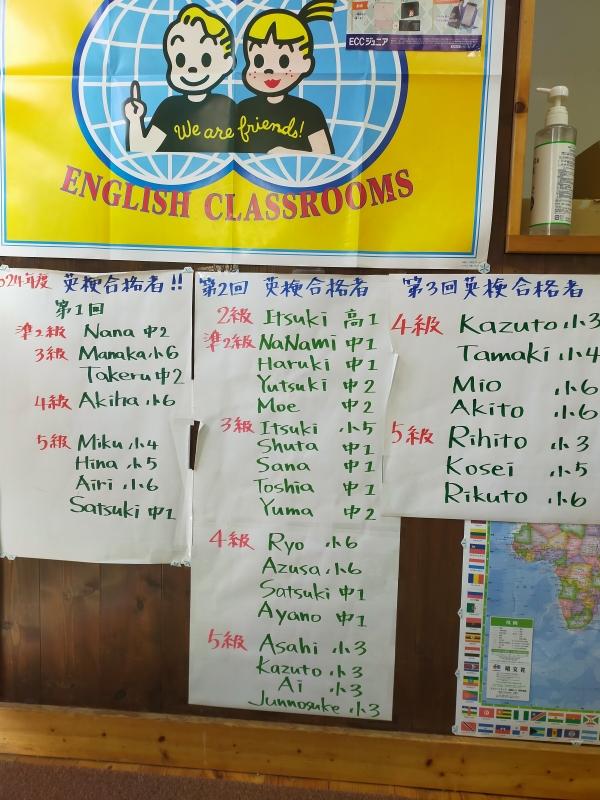 We are friends!
ECCジュニア
ENGLISH CLASSROOMS
024年度 英検合格者!!
第1回
準2級 Nana 中2
3級 Manaka 小6
Takeru 中2
4級 Akiha 小6
5級 Miku 小4
Hina 小5
Airi 小6
Satsuki 中1
第2回 英検合格者
2級 Itsuki 高1
準2級 NaNami 中1
Haruki 中1
Yutsuki 中2
Moe 中2
3級 Itsuki 小5
Shuta 中1
Sana 中1
Toshia 中1
Yuma 中2
4級 Ryo 小6
Azusa 小6
Satsuki 中1
Ayano 中1
5級 Asahi 小3
Kazuto 小3
Ai 小3
Junnosuke 小3
第3回英検合格者
4級 Kazuto 小3
Tamaki 小4
Mio 小6
Akito 小6
5級 Rihito 小3
Kosei 小5
Rikuto 小6
昭文社